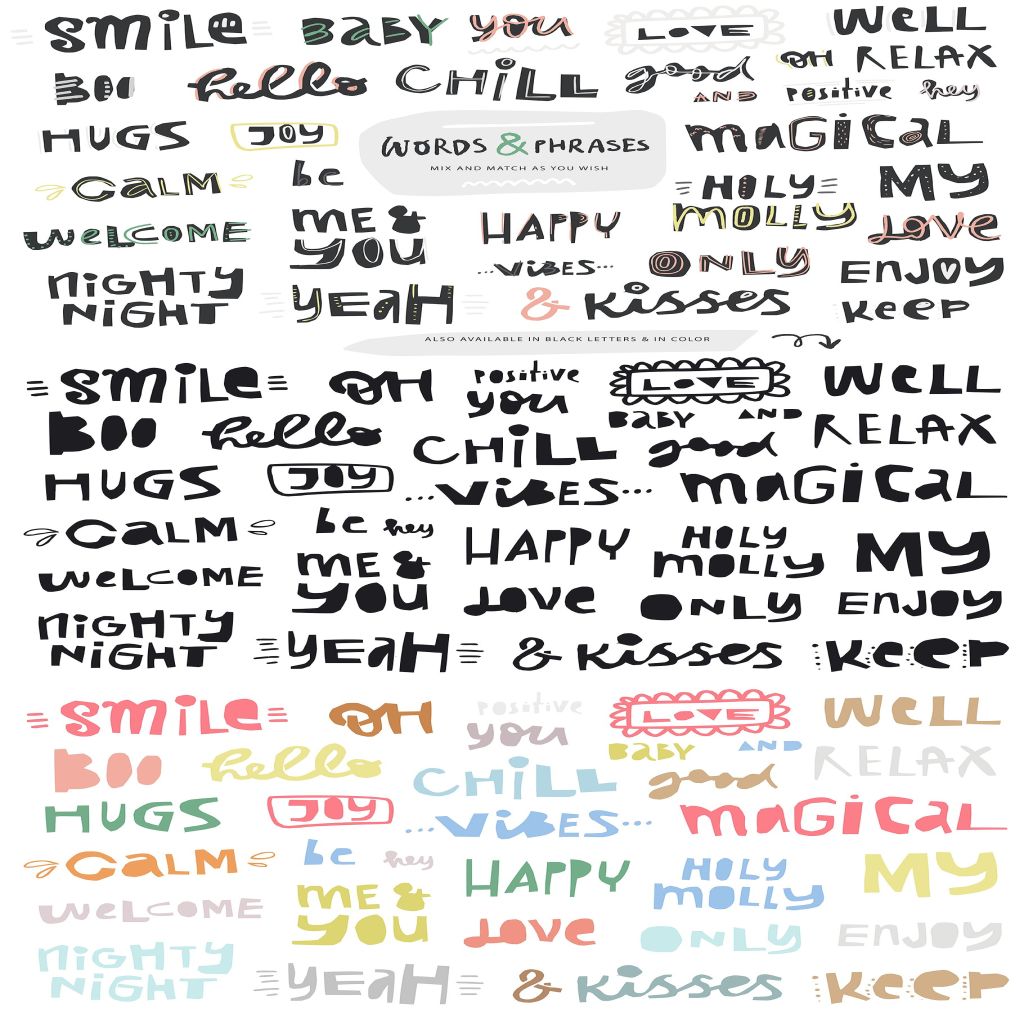 SMiLe BABY you LOVE WeLL
BOO hello CHiLL good OH RELAX
AND positive hey
HUGS JOY WORDS & PHRASES maGiCaL
MIX AND MATCH AS YOU WISH
CaLM be HOLY MY
WeLCOME ME & YOU HAPPY MOLLY Love
NiGHTY NiGHT ViBES ONLY ENJOY
YEaH & Kisses Keep
ALSO AVAILABLE IN BLACK LETTERS & IN COLOR
SMiLe OH positive you LOVE WeLL
BOO hello CHiLL BABY good AND RELAX
HUGS JOY ...ViBES... maGiCaL
CaLM be hey HAPPY HOLY MOLLY MY
WeLCOME ME & YOU Love ONLY ENJOY
NiGHTY NiGHT YEaH & Kisses Keep
SMiLe OH positive you LOVE WeLL
BOO hello CHiLL BABY good AND RELAX
HUGS JOY ...ViBES... maGiCaL
CaLM be hey HAPPY HOLY MOLLY MY
WeLCOME ME & YOU Love ONLY ENJOY
NiGHTY NiGHT YEaH & Kisses Keep